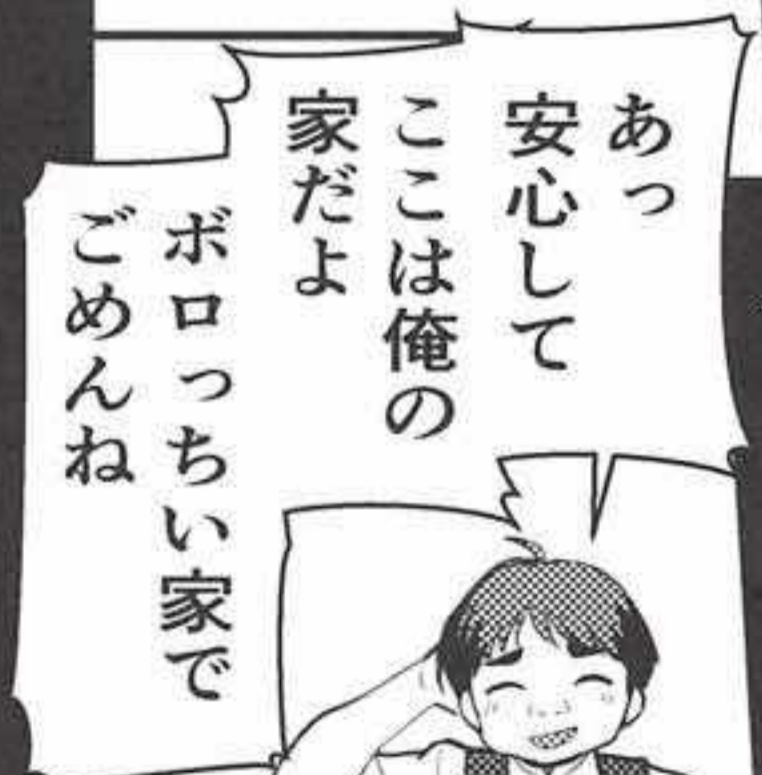 あっ
安心して
ここは俺の
家だよ
ボロっちい家で
ごめんね